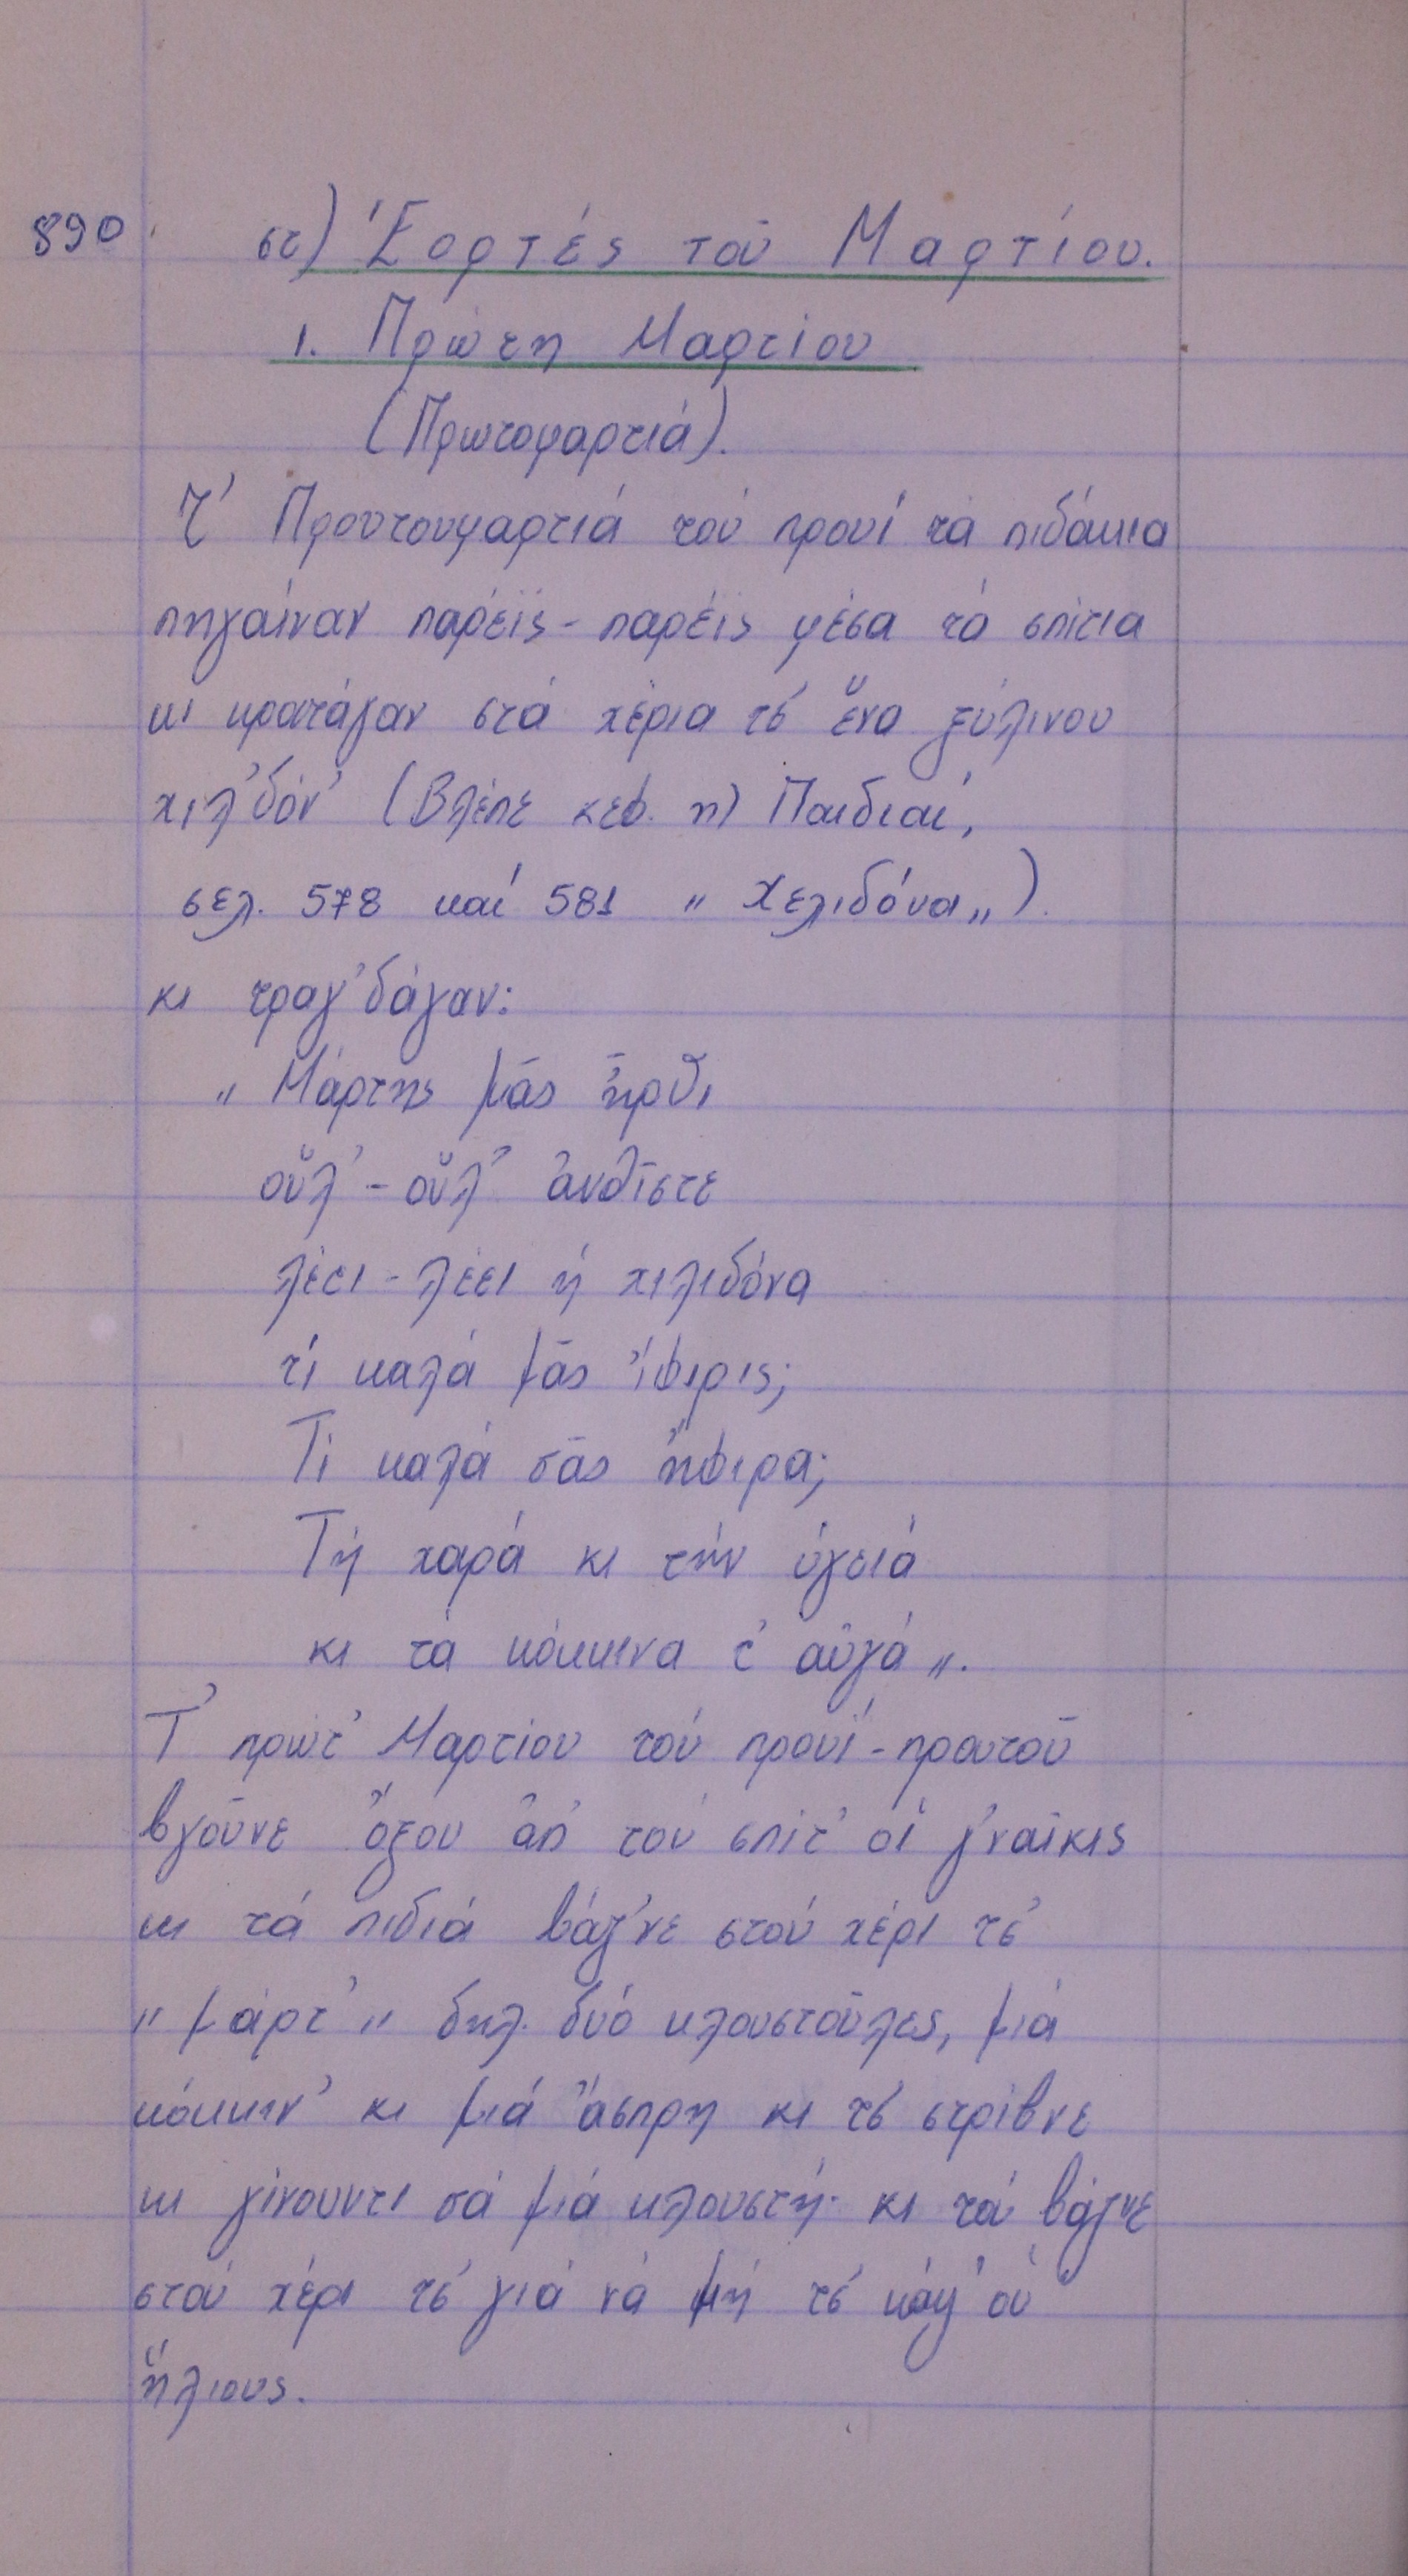 890
στ) Ἑορτές τοῦ Μαρτίου.
1. Πρώτη Μαρτίου
(Πρωτομαρτιά).
Τ' Προυτουμαρτιά τού προυί τά πιδάκια
πηγαίναν παρέϊς - παρέϊς μέσα τά σπίτια
κι κρατάγαν στά χέρια τσ' ἕνα ξύλινου
χιλ'δόν' (Βλέπε κεφ. η) Παιδιαί,
σελ. 578 καί 581 „ Χελιδόνα„).
κι τραγ'δάγαν:
„ Μάρτης μᾶς ἦρθι
οὔλ' - οὔλ' ἀνθῖστε
λέει - λέει ἡ χιλιδόνα
τί καλά μᾶς ἤφιρις;
Τί καλά σᾶς ἤφιρα;
Τή χαρά κι τήν ὑγειά
κι τά κόκκινα τ' αὐγά„.
Τ' πρώτ' Μαρτίου τού προυί - προυτοῦ
βγοῦνε ὄξου ἀπ' τού σπίτ' οἱ γ'ναῖκις
κι τά πιδιά βάζ'νε στού χέρι τσ'
„ μάρτ' „ δηλ. δυό κλουστοῦλες, μιά
κόκκιν' κι μιά ἄσπρη κι τσ' στρίβνε
κι γίνουντι σά μιά κλουστή· κι τού βάζνε
στού χέρι τσ' γιά νά μή τσ' κάψ' οὑ
ἥλιους.